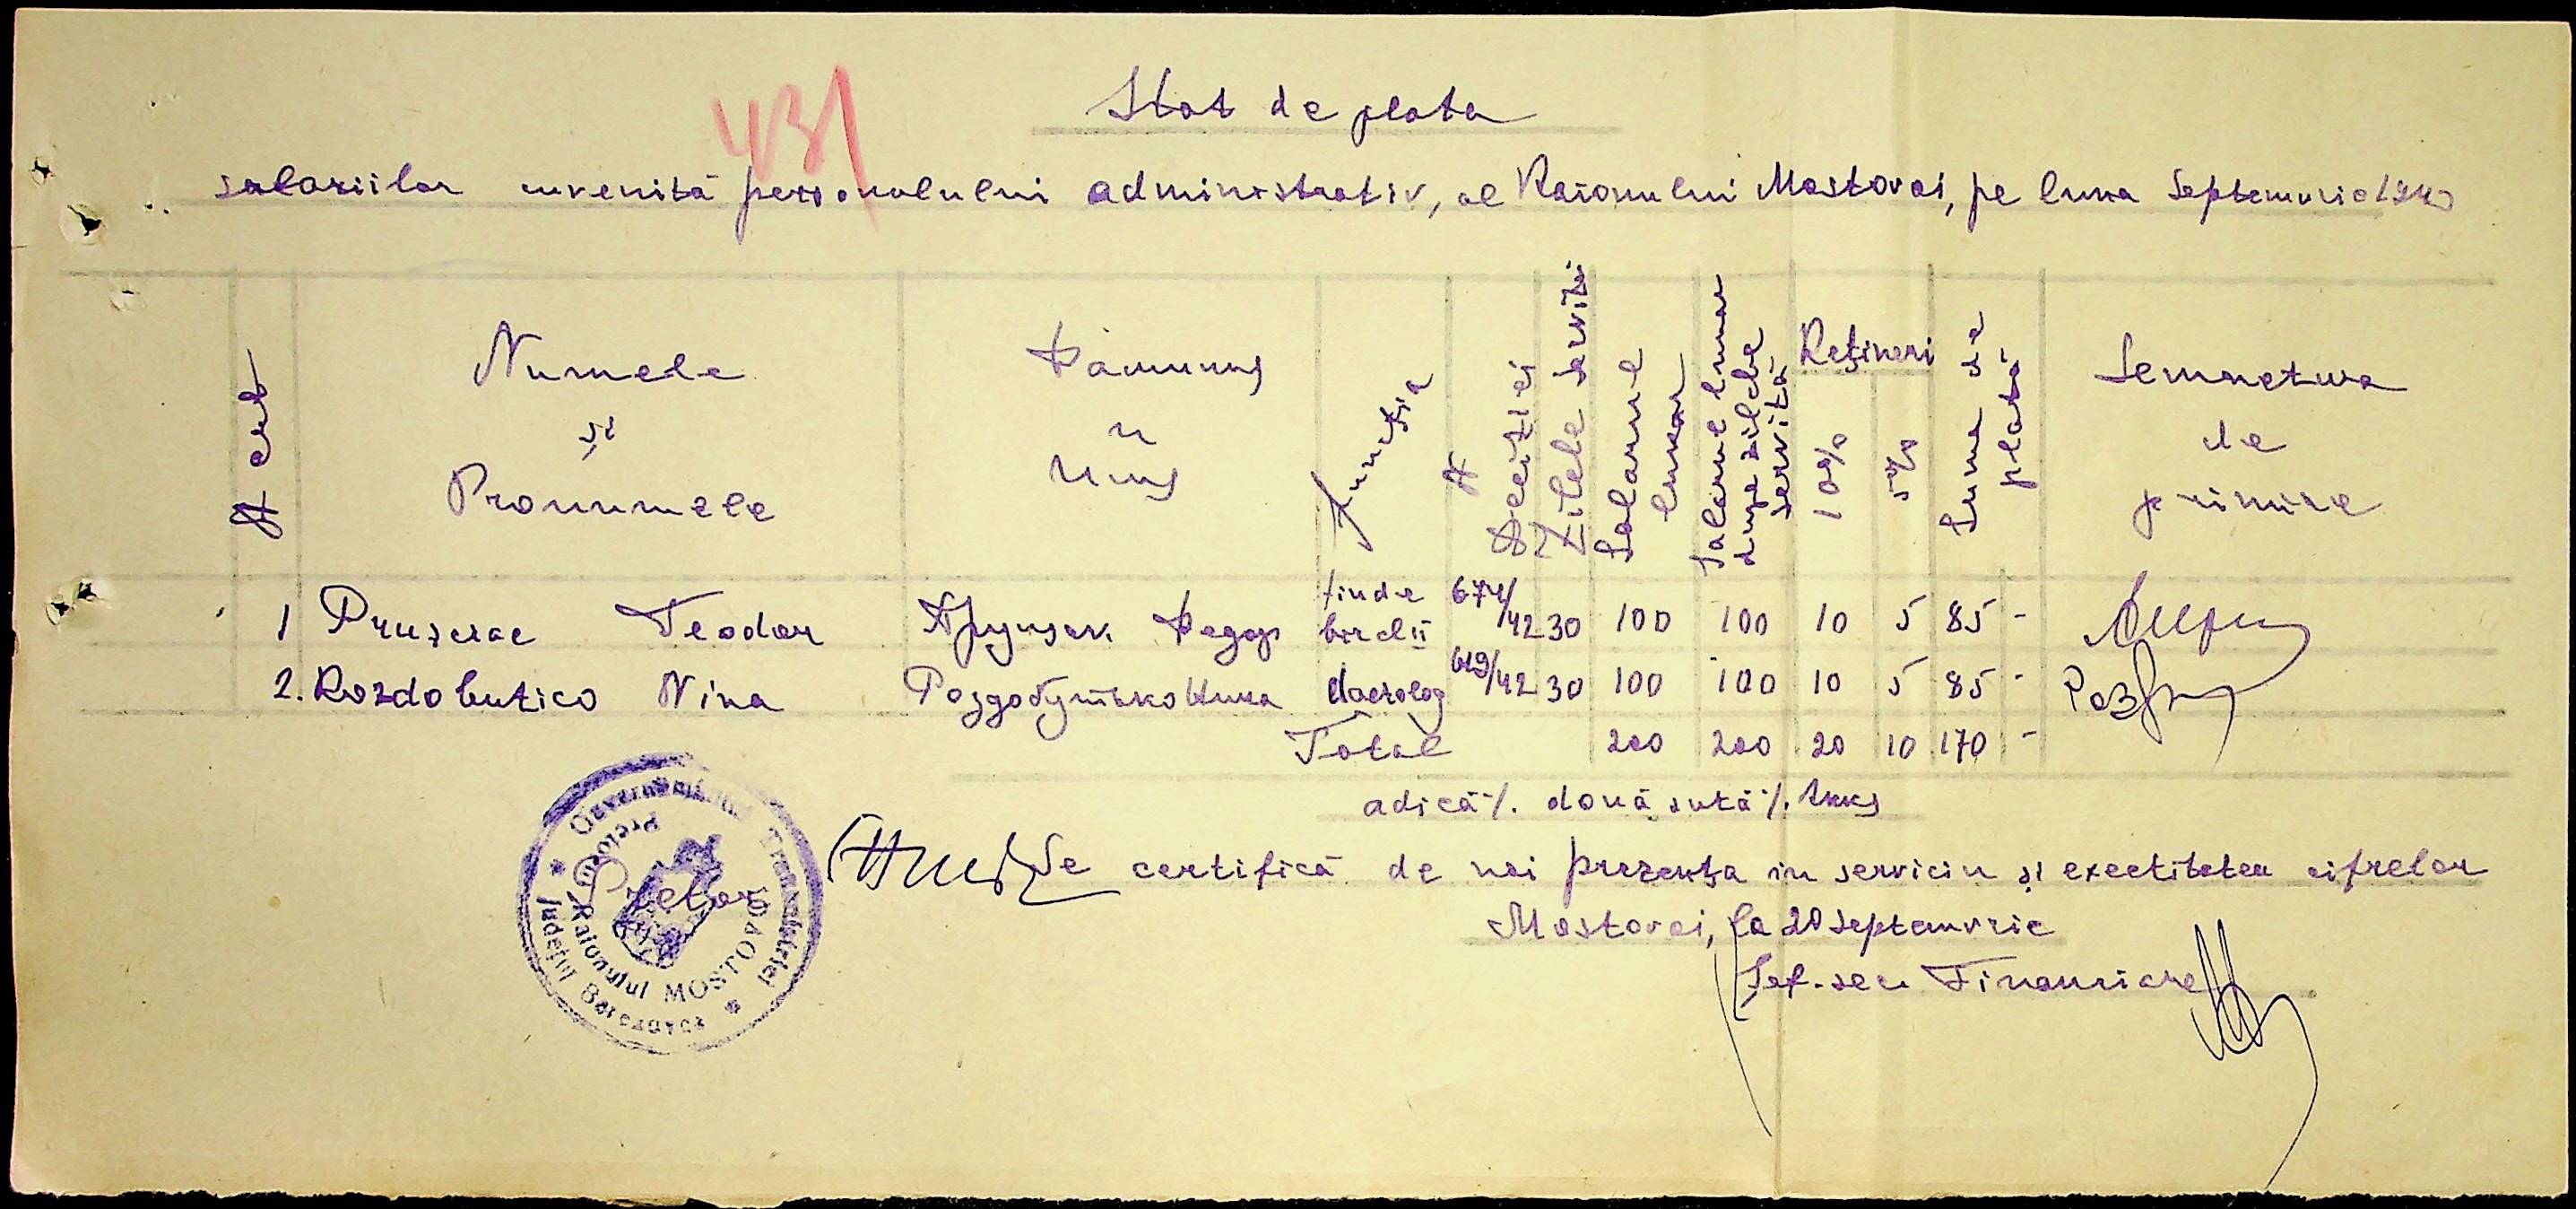 431
Stat de plata
salariilor cuvenită personalului administrativ, al Raionului Mostovoi, pe luna Septemvrie
N crt
Numele și Pronumele
Фамилия и Имя
Funcția
N Deciziei
Zilele servite
Salariul lunar
Salariul lunar dupe zilele servită
Rețineri
10%
5%
Suma de plată
Semnetura de primire
1 Prușceac Teodor Федор 674/42 30 100 100 10 5 85 -
2. Rozdobutico Nina Роздобудько Нина 619/42 30 100 100 10 5 85 -
Total 200 200 20 10 170 -
adică %. două sută %.
Se certifică de noi prezența in serviciu și exectitetea cifrelor
Mostovoi, la 20 Septemvrie
Șef. sec. Financiare
Pretor
Guvernământul Transnistriei
Județul Berezovca
Pretura Raionului MOSTOVOI